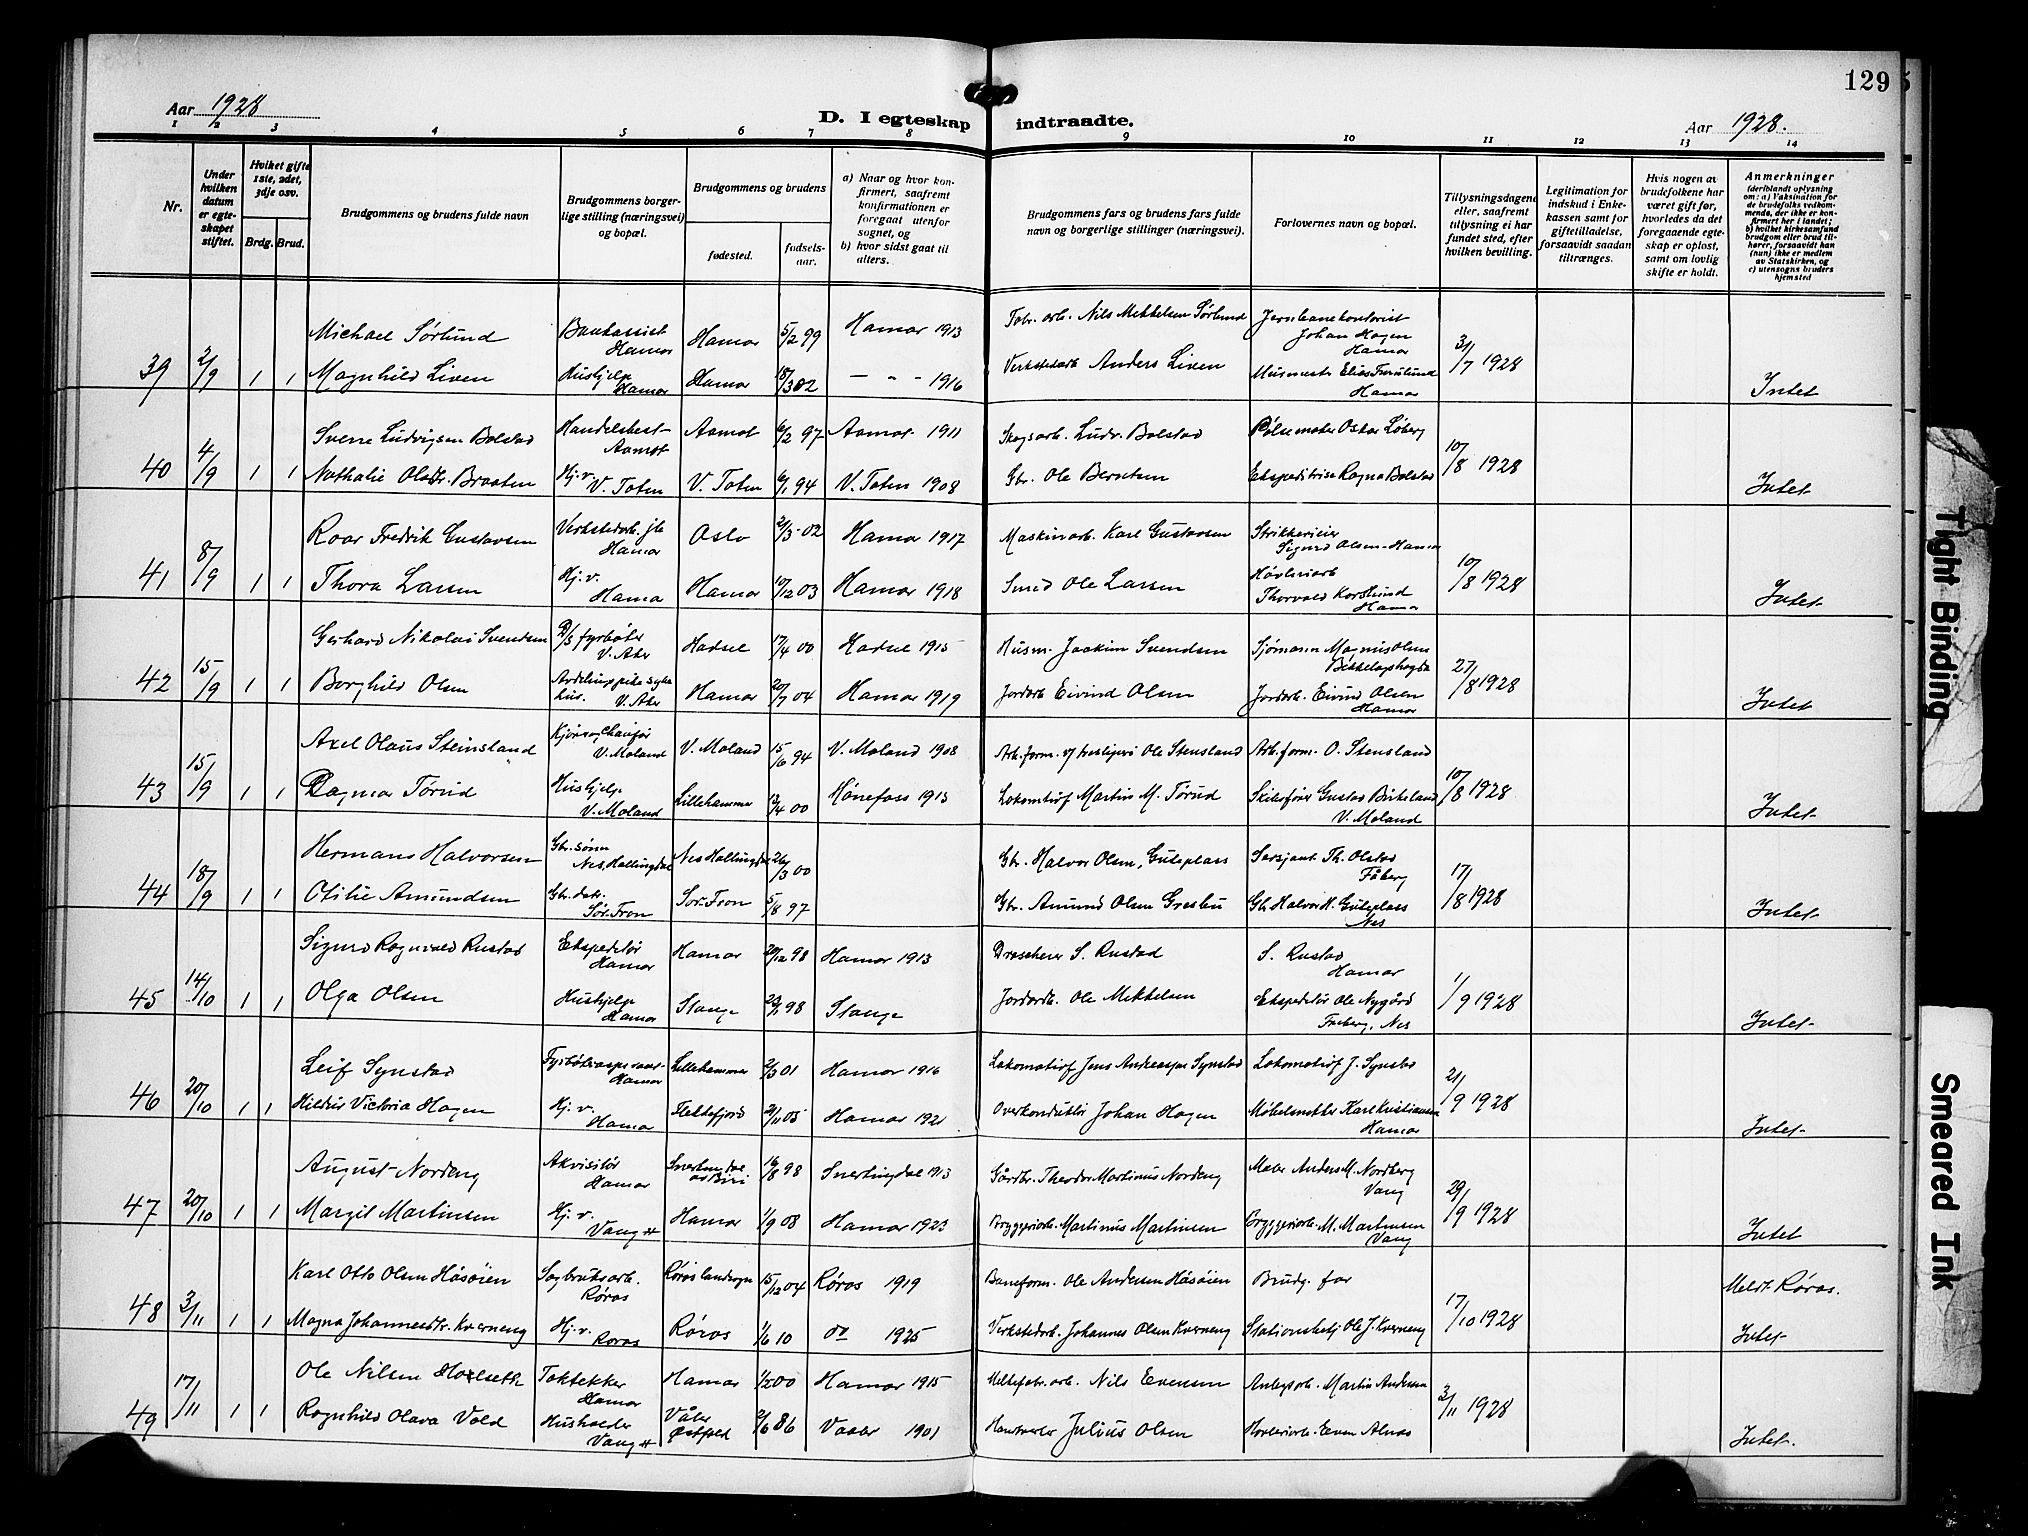 129
Aar 1928
D. I egteskap indtraadte.
Aar 1928.
1 2 3 4 5 6 7 8 9 10 11 12 13 14
Nr.
Under hvilken datum er egteskapet stiftet.
Hvilket gifte 1ste, 2det, 3dje osv.
Brdg. Brud.
Brudgommens og brudens fulde navn
Brudgommens borgerlige stilling (næringsvei) og bopæl.
Brudgommens og brudens
fødested.
fødselsaar.
a) Naar og hvor konfirmert, saafremt konfirmationen er foregaat utenfor sognet, og
b) hvor sidst gaat til alters.
Brudgommens fars og brudens fars fulde navn og borgerlige stillinger (næringsvei).
Forlovernes navn og bopæl.
Tillysningsdagene eller, saafremt tillysning ei har fundet sted, efter hvilken bevilling.
Legitimation for indskud i Enkekassen samt for giftetilladelse, forsaavidt saadan tiltrænges.
Hvis nogen av brudefolkene har været gift før, hvorledes da det foregaaende egteskap er opløst, samt om lovlig skifte er holdt.
Anmerkninger (deriblandt oplysning om: a) Vaksination for de brudefolks vedkommende, der ikke er konfirmert her i landet; b) hvilket kirkesamfund brudgom eller brud tilhører, forsaavidt han (hun) ikke er medlem av Statskirken, og c) utensogns bruders hjemsted
Michael Sørlund Bankassist Hamar Hamar 5/2 99 Hamar 1913 Fabr. arb. Nils Mikkelsen Sørlund Jernbanekontorist Johan Hagen Hamar
39 2/9 1 1 Magnhild Liven Hushjelp Hamar Hamar 18/3 02 — " - 1916 Verkstedarb Anders Liven Murmester Elias Furulund Hamar 31/7 1928 Intet
Sverre Ludvigsen Bolstad Handelsbest- Aamot Aamot 6/2 97 Aamot 1911 Skogsarb. Ludv. Bolstad Pølsemaker Oskar Løberg
40 4/9 1 1 Nathalie Olsdr. Braaten Hj. v. V. Toten V. Toten 6/1 94 V. Toten 1908 Gbr. Ole Berntsen Ekspeditrise Ragna Bolstad 10/8 1928 Intet
Roar Fredrik Gustavsen Verkstedarb. Hamar Oslo 2/3-02 Hamar 1917 Maskinarb. Karl Gustavsen Strikkerieier Sigurd Olsen-Hamar
41 8/9 1 1 Thora Larsen Hj. v. Hamar Hamar 10/12 03 Hamar 1918 Smed Ole Larsen Høvleriarb Thorvald Korslund Hamar 10/8 1928 Intet
Gerhard Nikolai Svendsen D/S fyrbøter V. Aker Hadsel 17/4 00 Hadsel 1915 Husm. Joakim Svendsen Sjømann Magnus Olsen
42 15/9 1 1 Borghild Olsen V. Aker Hamar 20/7 04 Hamar 1919 Jordarb Eivind Olsen Jordarb. Eivind Olsen Hamar 27/8 1928 Intet
Axel Olaus Steinsland V. Moland V. Moland 15/6 94 V. Moland 1908 Arb. form. Ole Stensland Arb. form. O. Stensland
43 15/9 1 1 Dagmar Tørud Hushjelp V. Moland Lillehammer 12/4 00 Hønefoss 1915 Lokomotivf Martin M. Tørud Gustav Birkeland V. Moland 10/8 1928 Intet
Hermann Halvorsen Gbr. sønn Nes, Hallingdal Nes Hallingdal 26/3 00 Gbr. Halvor Olsen, Guleplass Sersjant Th. Olstad Fåberg
44 18/9 1 1 Otilie Amundsen Gbr. datr. Sør. Fron Sør. Fron 5/8 97 Gbr. Amund Olsen Gbr. Halvor H. Guleplass Nes 17/8 1928 Intet
Sigurd Ragnvald Rustad Ekspeditør Hamar Hamar 20/12 98 Hamar 1913 S. Rustad S. Rustad Hamar
45 14/10 1 1 Olga Olsen Hushjelp Hamar Stange 98 Stange Jordarb. Ole Mikkelsen Ekspeditør Ole Nygård Nes 1/9 1928 Intet
Leif Synstad Hamar Lillehammer 2/3 01 Hamar 1916 Lokomotivf Jens Andreassen Synstad Lokomotivf J. Synstad
46 20/10 1 1 Hildur Victoria Hagen Hj. v. Hamar Flekkefjord 2/11 05 Hamar 1921 Overkonduktør Johan Hagen Møbelsnekker Karl Kristiansen Hamar 21/9 1928 Intet
August Nordeng Akvisitør Hamar Snertingdal Biri 16/8 98 Snertingdal 1913 Gårdbr. Theodor Martinus Nordeng Maler Anders M. Nordberg Vang
47 20/10 1 1 Margit Martinsen Hj. v. Vang H Hamar 1/9 08 Hamar 1923 Bryggeriarb. Martinus Martinsen Bryggeriarb. M. Martinsen Vang 29/9 1928 Intet
Karl Otto Olsen Håsøien Sagbruksarb. Røros Røros landsogn 15/12 04 Røros 1919 Baneform. Ole Andersen Håsøien Brudg. far Meldt Røros.
48 3/11 1 1 Magna Johannesdtr. Kverneng Hj. v. Røros Røros 1/6 10 do 1925 Verkstedarb. Johannes Olsen Kverneng Stationsbetj Ole J. Kverneng 17/10 1928 Intet
Ole Nilsen Holseth Taktekker Hamar Hamar 1/2 00 Hamar 1915 Nils Evensen Anlegsarb. Martin Andersen
49 17/11 1 1 Ragnhild Olava Vold Husholder Vang H Våler Østfold 2/6 86 Vaaler 1901 Julius Olsen Høvleriarb. Even Alnæs 3/11 1928 Intet.
Tight Binding
Smeared Ink